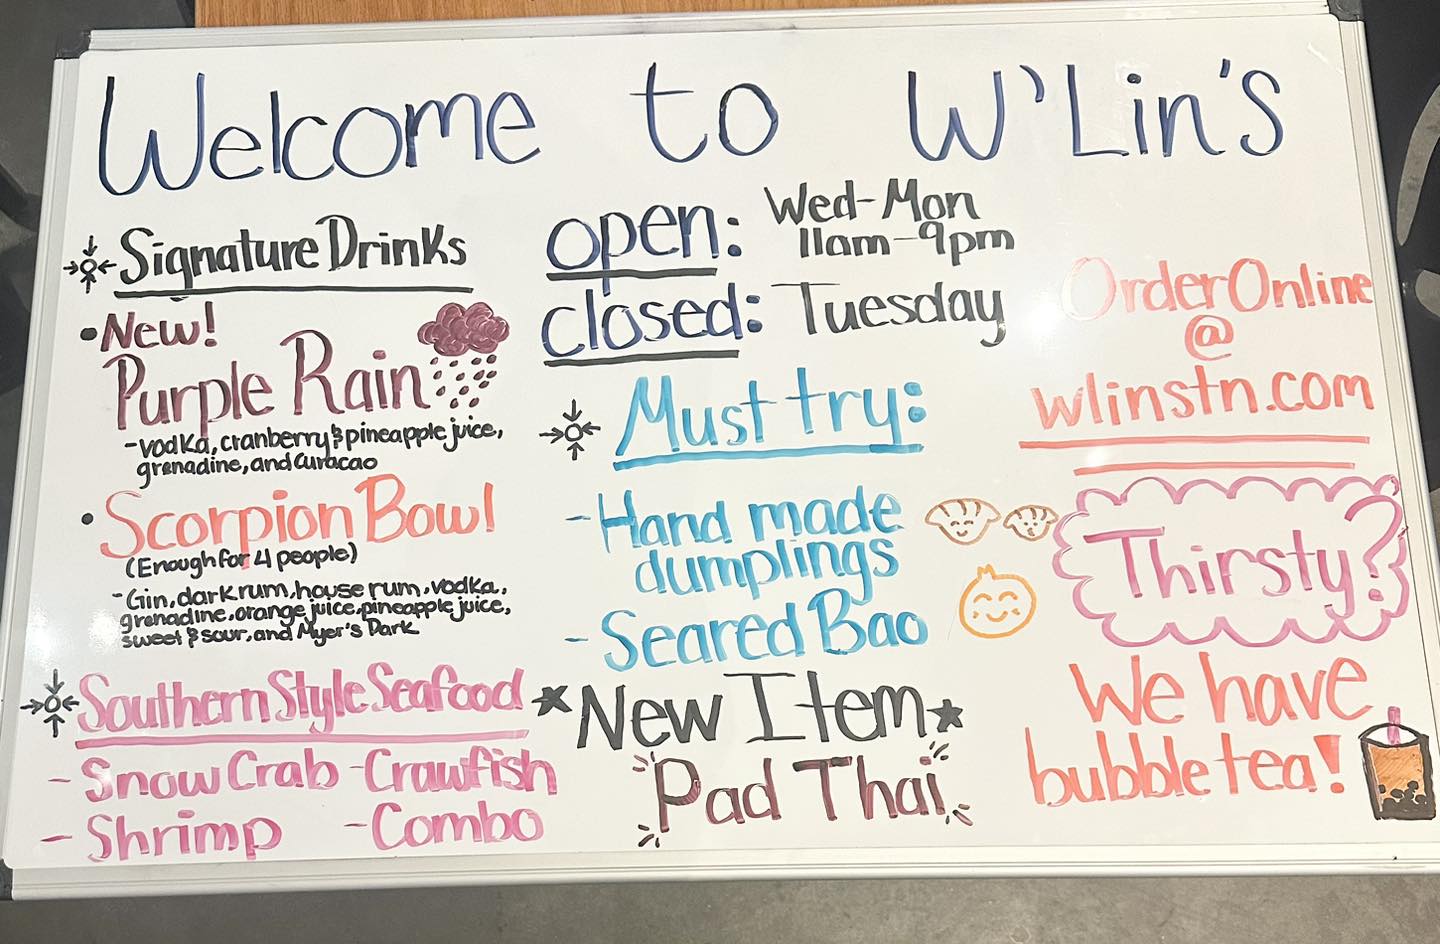 Welcome to W'Lin's
Signature Drinks
• New!
Purple Rain
- vodka, cranberry & pineapple juice,
grenadine, and Curacao
• Scorpion Bowl
(Enough for 4 people)
- Gin, dark rum, house rum, vodka,
grenadine, orange juice, pineapple juice,
sweet & sour, and Myer's Dark
Southern Style Seafood
- Snow Crab - Crawfish
- Shrimp - Combo
open: Wed-Mon
11am-9pm
closed: Tuesday
Must try:
- Hand made
dumplings
- Seared Bao
New Item
Pad Thai
Order Online
@
wlinstn.com
Thirsty?
We have
bubble tea!